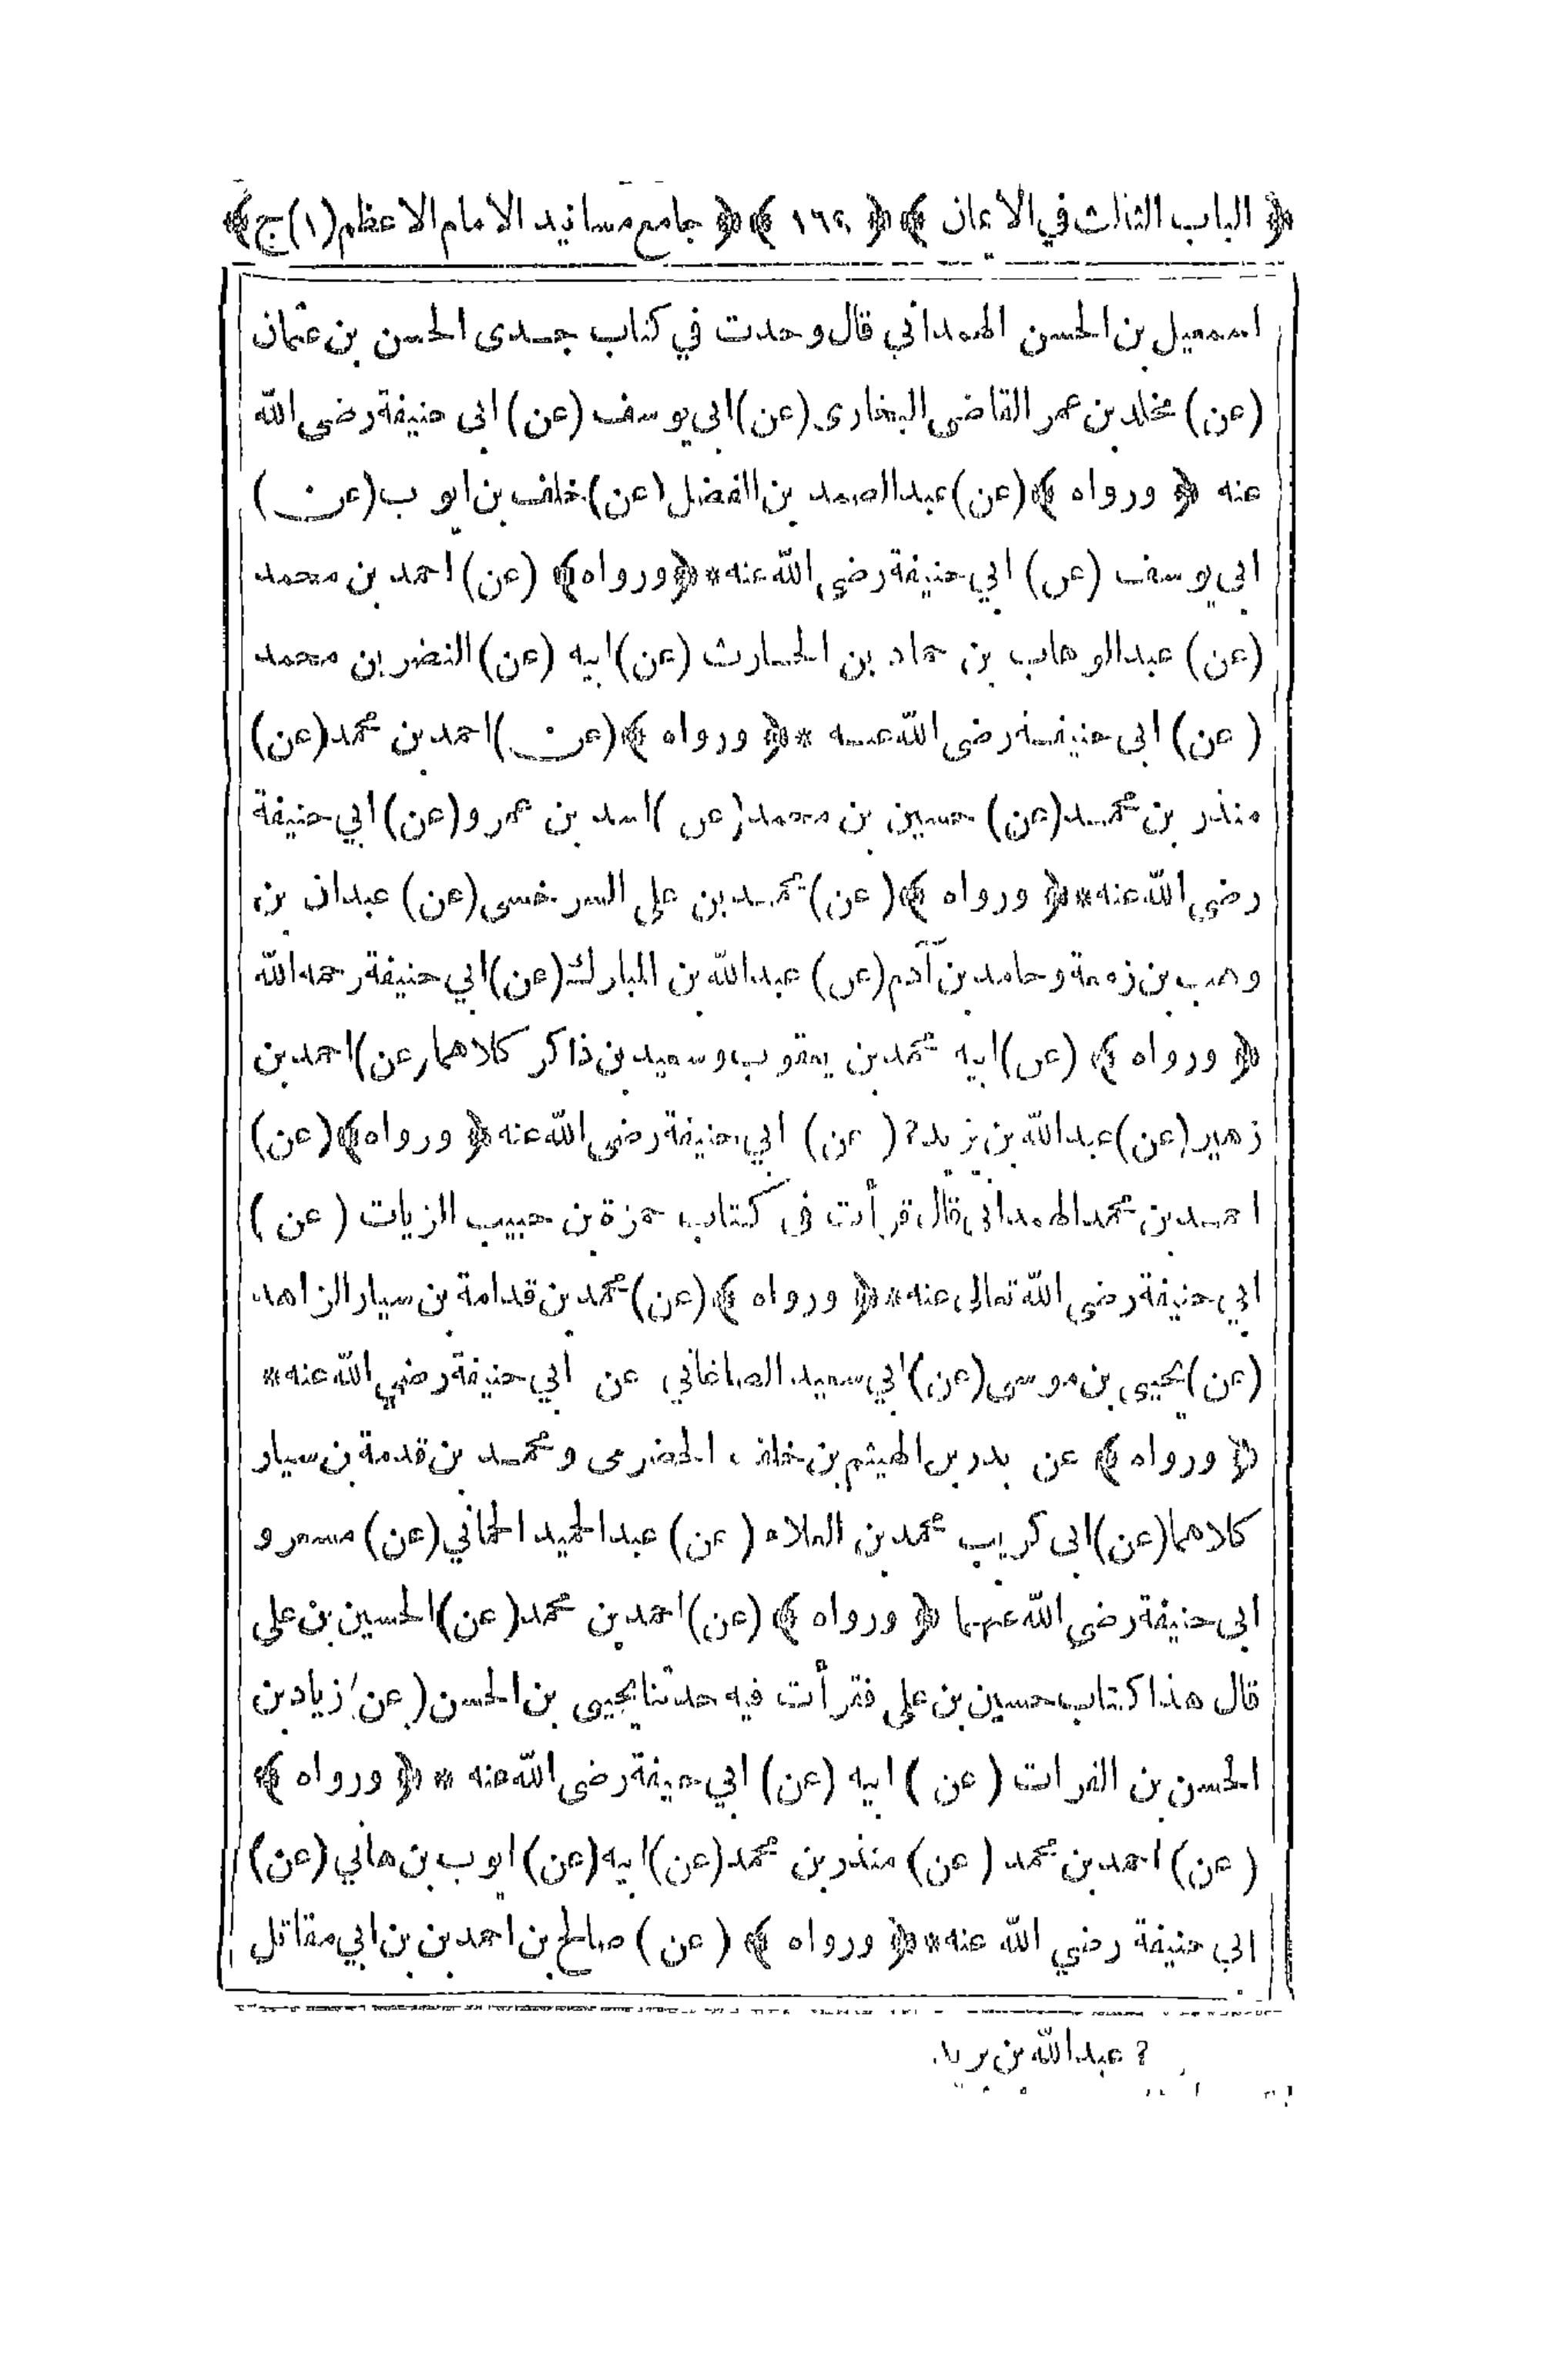 ﴿ الباب الثالث في الايمان ﴾ ﴿ ﴾ ﴿ جامع مسانيد الامام الاعظم (١) ج ﴾
اسمعيل بن الحسن الهمداني قال وجدت في كتاب جدى الحسن بن عثمان
(عن) مخلد بن عمر القاضى البخارى (عن) ابي يوسف (عن) ابى حنيفة رضى الله
عنه ﴿ ورواه ﴾ (عن) عبد الصمد بن الفضل (عن) خلف بن ايوب (عن)
ابى يوسف (عن) ابي حنيفة رضى الله عنه * ﴿ ورواه ﴾ (عن) احمد بن محمد
(عن) عبد الوهاب بن حماد بن الحارث (عن) ابيه (عن) النضر بن محمد
(عن) ابى حنيفة رضى الله عنه * ﴿ ورواه ﴾ (عن) احمد بن محمد (عن)
منذر بن محمد (عن) حسين بن محمد (عن) اسد بن عمرو (عن) ابي حنيفة
رضى الله عنه * ﴿ ورواه ﴾ (عن) محمد بن على السرخسى (عن) عبدان بن
وهب بن زمعة وحامد بن آدم (عن) عبد الله بن المبارك (عن) ابي حنيفة رحمه الله
﴿ ورواه ﴾ (عن) ابيه محمد بن يعقوب وسعيد بن ذاكر كلاهما (عن) احمد بن
زهير (عن) عبد الله بن يزيد ? (عن) ابي حنيفة رضى الله عنه ﴿ ورواه ﴾ (عن)
احمد بن محمد الهمدانى قال قرأت فى كتاب حمزة بن حبيب الزيات (عن)
ابي حنيفة رضى الله تعالى عنه * ﴿ ورواه ﴾ (عن) محمد بن قدامة بن سيار الزاهد
(عن) يحيى بن موسى (عن) ابي سعيد الصاغاني عن ابي حنيفة رضي الله عنه *
﴿ ورواه ﴾ عن بدر بن الهيثم بن خلف الحضرمى ومحمد بن قدمة بن سيار
كلاهما (عن) ابى كريب محمد بن العلاء (عن) عبد الحميد الحماني (عن) مسعر و
ابى حنيفة رضي الله عنهما ﴿ ورواه ﴾ (عن) احمد بن محمد (عن) الحسين بن على
قال هذا كتاب حسين بن على فقرأت فيه حدثنا يحيى بن الحسن (عن) زياد بن
الحسن بن الفرات (عن) ابيه (عن) ابي حنيفة رضى الله عنه * ﴿ ورواه ﴾
(عن) احمد بن محمد (عن) منذر بن محمد (عن) ابيه (عن) ايوب بن هاني (عن)
ابي حنيفة رضي الله عنه * ﴿ ورواه ﴾ (عن) صالح بن احمد بن بن ابي مقاتل
? عبد الله بن بريد